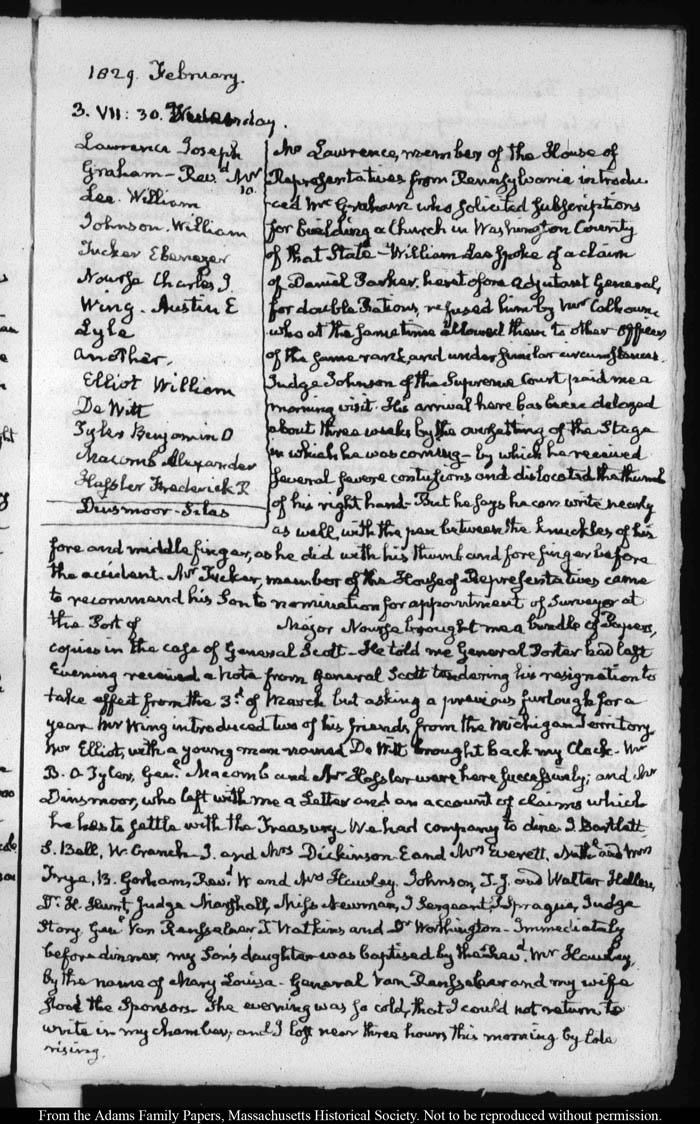 1829. February.
3. VII: 30. Wednesday.
Lawrence Joseph
Graham - Revd. Mr
10.
Lee. William
Johnson. William
Tucker Ebenezer
Nourse Charles J.
Wing. Austin E
Lyle
Another.
Elliot William
De Witt
Tyler Benjamin O
Macomb Alexander
Hassler Frederick R
Dinsmoor - Silas
Mr Lawrence, member of the House of
Representatives from Pennsylvania introdu-
ced Mr Graham who solicited subscriptions
for building a Church in Washington County
of that State - William Lee spoke of a claim
of Daniel Parker, heretofore Adjutant General,
for double Rations, refused him by Mr Calhoun,
who at the same time allowed them to other officers
of the same rank, and under similar circumstances.
Judge Johnson of the Supreme Court paid me a
morning visit. His arrival here has been delayed
about three weeks by the oversetting of the Stage
in which he was coming - by which he received
several severe contusions and dislocated the thumb
of his right hand - But he says he can write nearly
as well, with the pen between the knuckles of his
fore and middle finger, as he did with his thumb and fore finger before
the accident. Mr Tucker, member of the House of Representatives came
to recommend his Son to nomination for appointment of Surveyor at
the Port of Major Nourse brought me a bundle of Papers,
copies in the case of General Scott - He told me General Porter had last
Evening received a Note from General Scott tendering his resignation to
take effect from the 3d. of March but asking a previous furlough for a
year. Mr Wing introduced two of his friends from the Michigan Territory,
Mr Elliot, with a young man named De Witt brought back my Clock - Mr
B. O Tyler, Genl. Macomb and Mr Hassler were here successively; and Mr
Dinsmoor, who left with me a Letter and an account of claims which
he has to settle with the Treasury. We had company to dine. I. Bartlett.
S. Bell, W. Cranch. J. and Mrs Dickinson E and Mrs Everett, Nathl. and Mrs
Frye, B. Gorham, Revd. W and Mrs Hawley. Johnson, T. J. and Walter Hellen,
Dr. H. Hunt, Judge Marshall, Miss Newman, J Sergeant, P Sprague, Judge
Story, Genl. Van Rensselaer T Watkins and Dr Worthington - Immediately
before dinner, my Son's daughter was baptised by the Revd. Mr Hawley,
by the name of Mary Louisa - General Van Rensselaer and my wife
stood the Sponsors. The evening was so cold, that I could not return to
write in my chamber; and I lost near three hours this morning by late
rising.
From the Adams Family Papers, Massachusetts Historical Society. Not to be reproduced without permission.